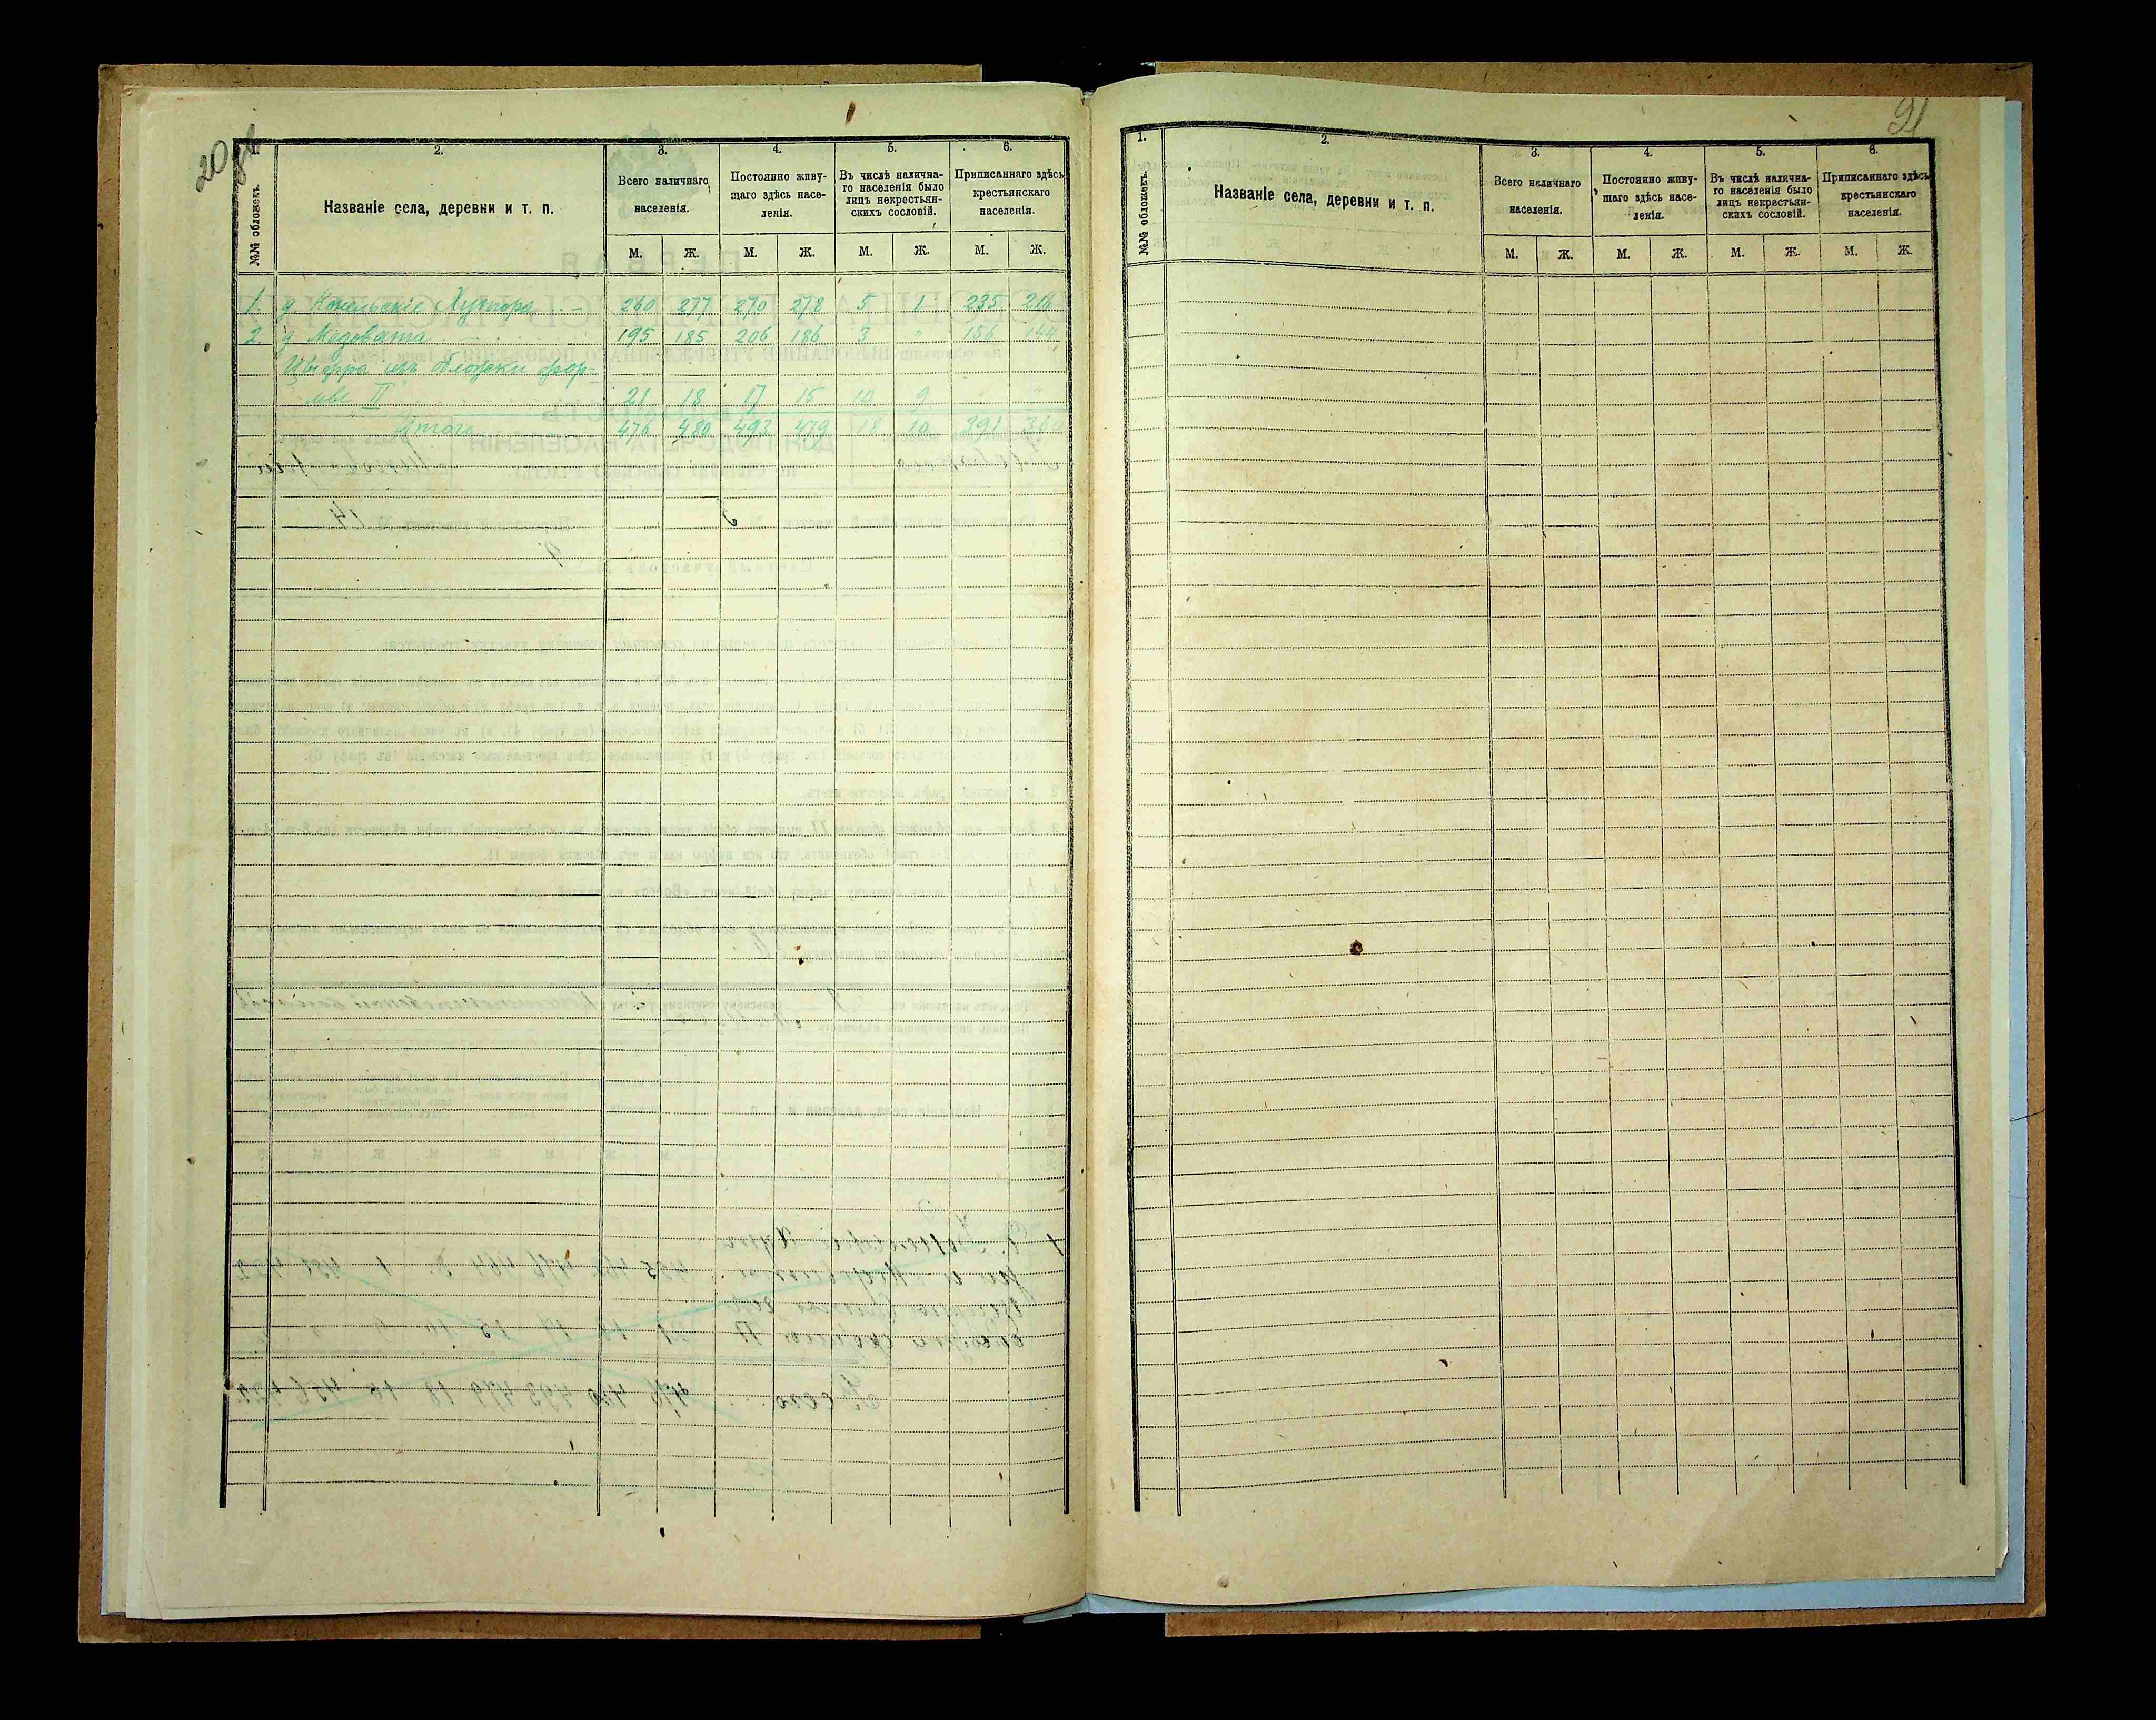 20 об
1. 2. 3. 4. 5. 6.
№№ обложекъ.
Названіе села, деревни и т. п.
Всего наличнаго населенія.
Постоянно живу-
щаго здѣсь насе-
ленія.
Въ числѣ налична-
го населенія было
лицъ некрестьян-
скихъ сословій.
Приписаннаго здѣсь
крестьянскаго
населенія.
М. Ж. М. Ж. М. Ж. М. Ж.
1. д Конельскіе Хутора 260 277 270 278 5 1 235 216
2 д Медовата 195 185 206 186 3 " 156 144
Цыфры изъ обложки фор-
мы II 21 18 17 15 10 9 " "
Итого 476 480 493 479 18 10 391 360
21
1. 2. 3. 4. 5. 6.
№№ обложекъ.
Названіе села, деревни и т. п.
Всего наличнаго
населенія.
Постоянно живу-
щаго здѣсь насе-
ленія.
Въ числѣ налична-
го населенія было
лицъ некрестьян-
скихъ сословій.
Приписаннаго здѣсь
крестьянскаго
населенія.
М. Ж. М. Ж. М. Ж. М. Ж.